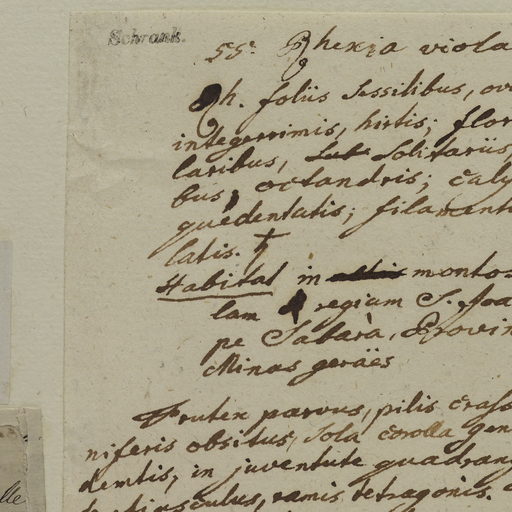 Schrank.
55. Rhexia viola
Rh. foliis sessilibus, ov
integerrimis, hirtis; flor
laribus, sub solitariis,
bus, octandris; caly
quedentatis; filament
latis. †
Habitat in montos
lam regiam S. Joa
pe Sabarà, Provin
Minas geraës
Frutex parvus, pilis crass
niferis obsitus, sola corolla gen
demtis, in juventute quadrang
tertiusculus, ramis tetragonis.
lle